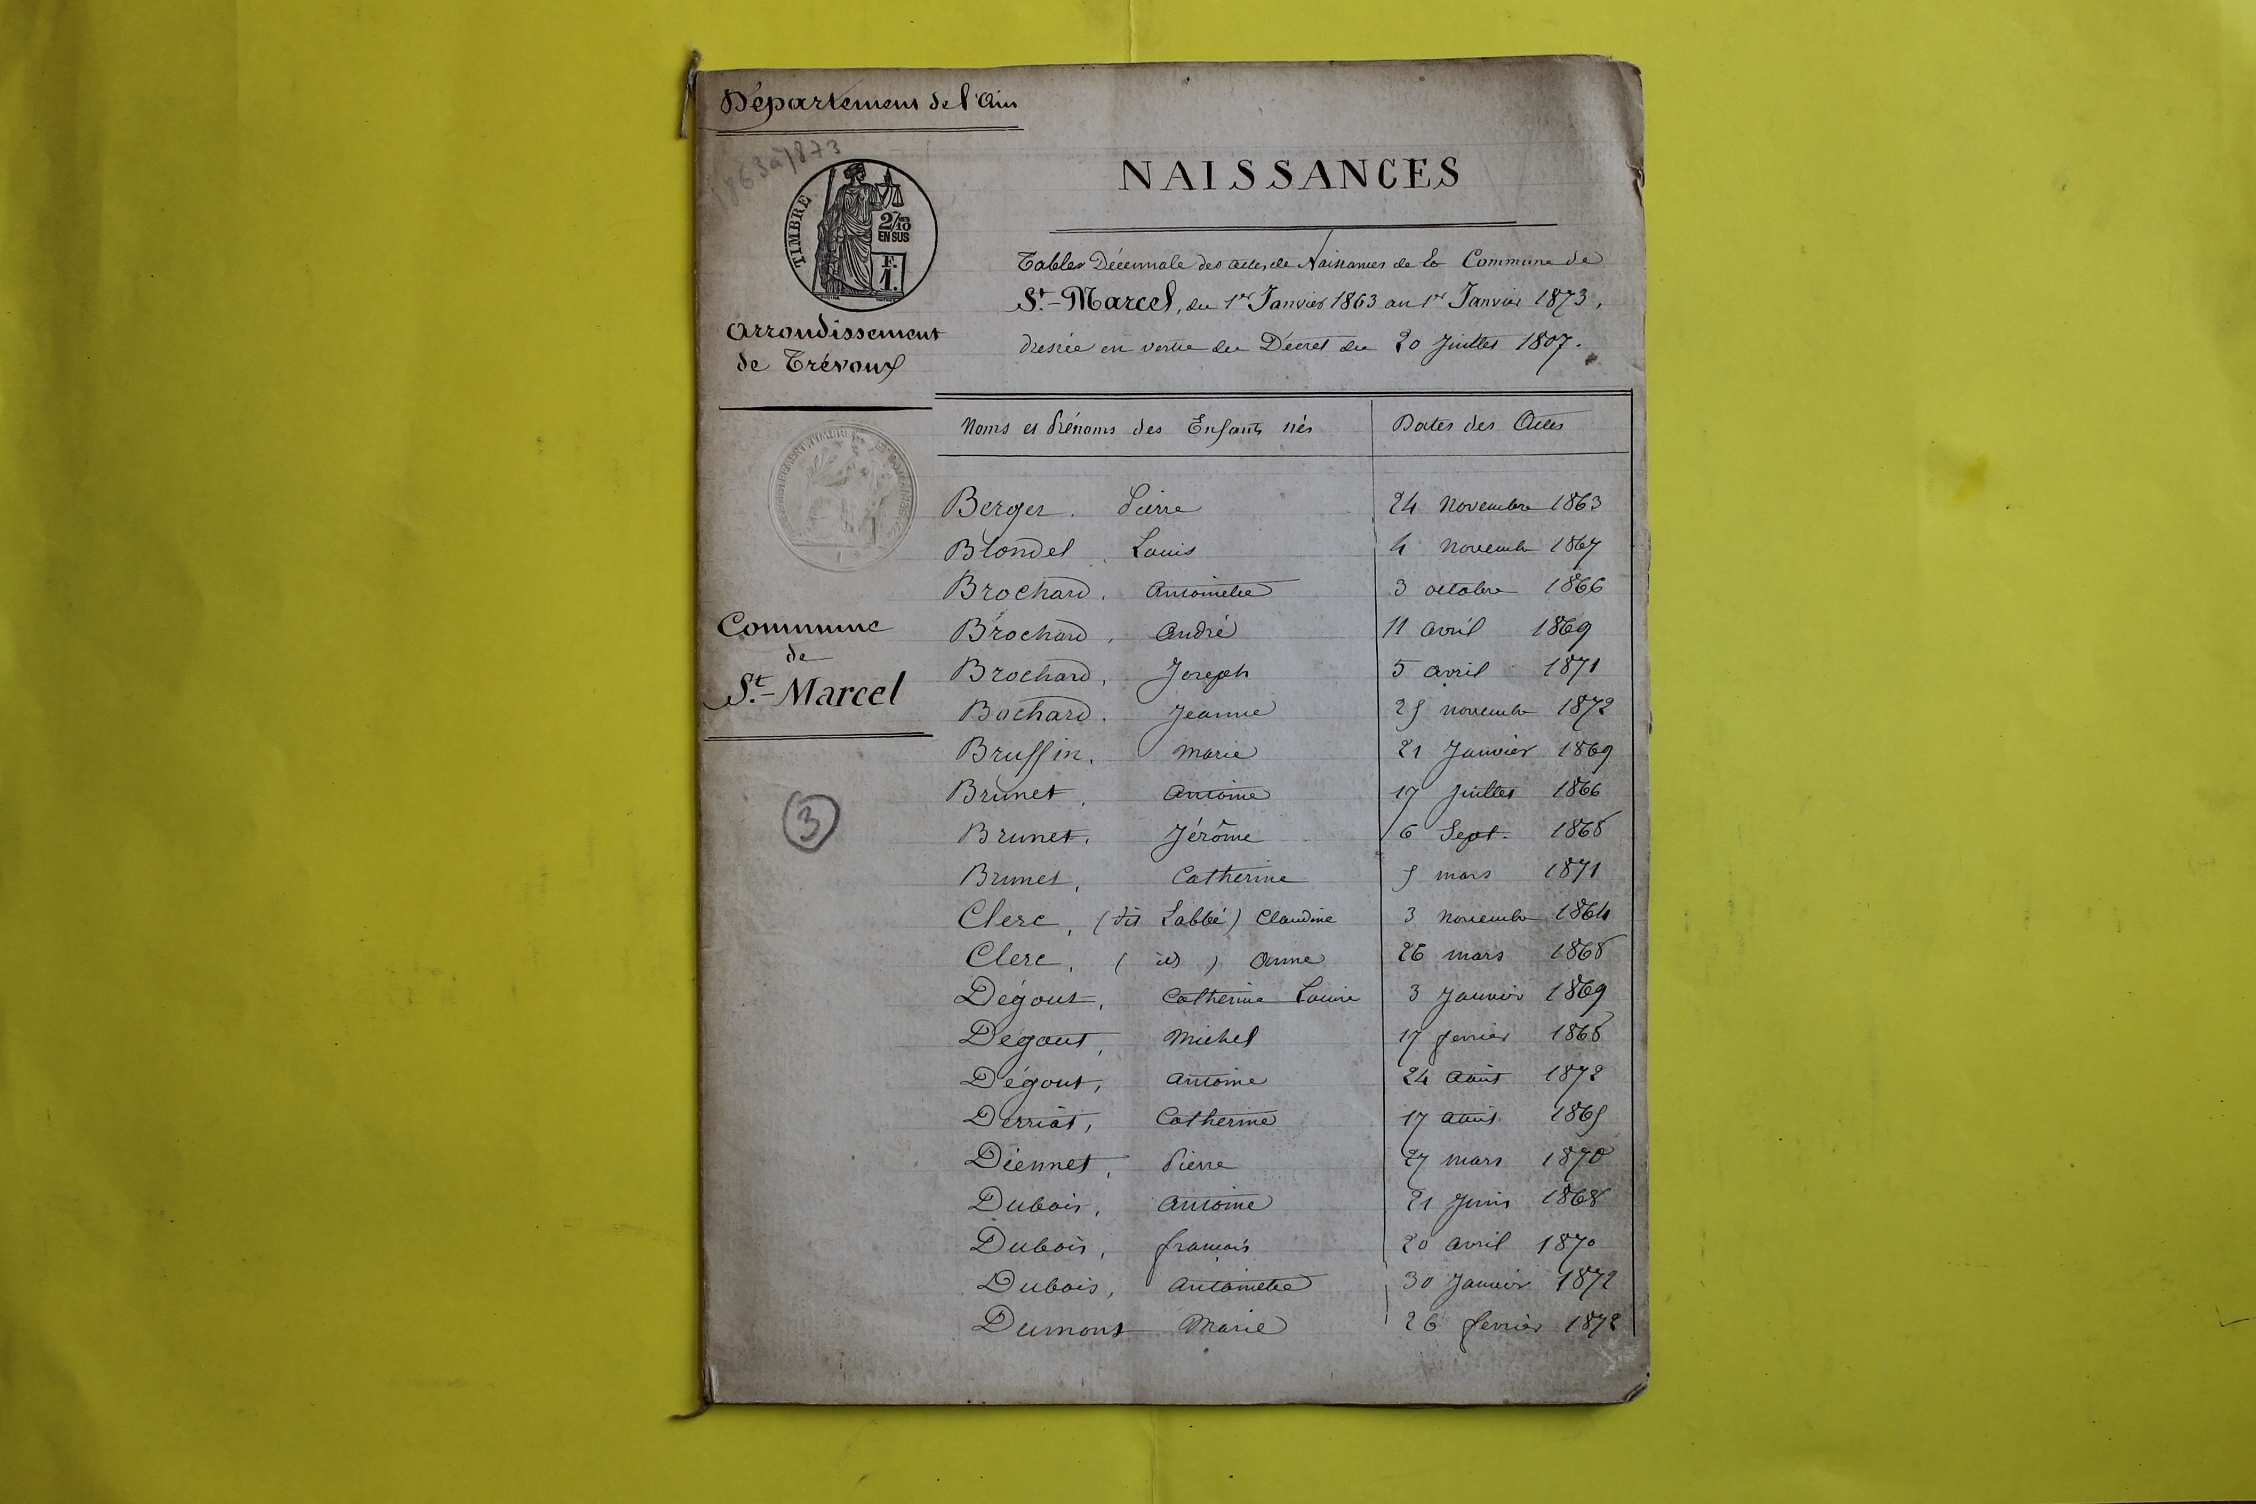 Département de l'Ain
1863 à 1873
TIMBRE
2/10
EN SUS
F.
1.
Arrondissement
de Trévoux
Commune
de
St.-Marcel
3
NAISSANCES
Tables Décennale des actes de Naissances de la Commune de
St.-Marcel, du 1er Janvier 1863 au 1er Janvier 1873,
dressée en vertu du Décret du 20 Juillet 1807.
Noms et Prénoms des Enfants nés Dates des Actes
Berger. Pierre 24 Novembre 1863
Blondel. Louis 4 novembre 1867
Brochard, Antoinette 3 octobre 1866
Brochard, André 11 avril 1869
Brochard, Joseph 5 avril 1871
Bochard. Jeanne 25 novembre 1872
Bruffin, Marie 21 Janvier 1869
Brunet, Antoine 17 Juillet 1866
Brunet, Jérôme 6 Sept. 1868
Brunet, Catherine 5 mars 1871
Clerc, (dit Labbé) Claudine 3 novembre 1864
Clerc, (id) Anne 26 mars 1868
Dégout, Catherine Louise 3 Janvier 1869
Dégout, Michel 17 fevrier 1868
Dégout, Antoine 24 Août 1872
Derriat, Catherine 17 août 1865
Diennet, Pierre 27 mars 1870
Dubois, Antoine 21 Juin 1868
Dubois, françois 20 avril 1870
Dubois, Antoinette 30 Janvier 1872
Dumont Marie 26 fevrier 1872